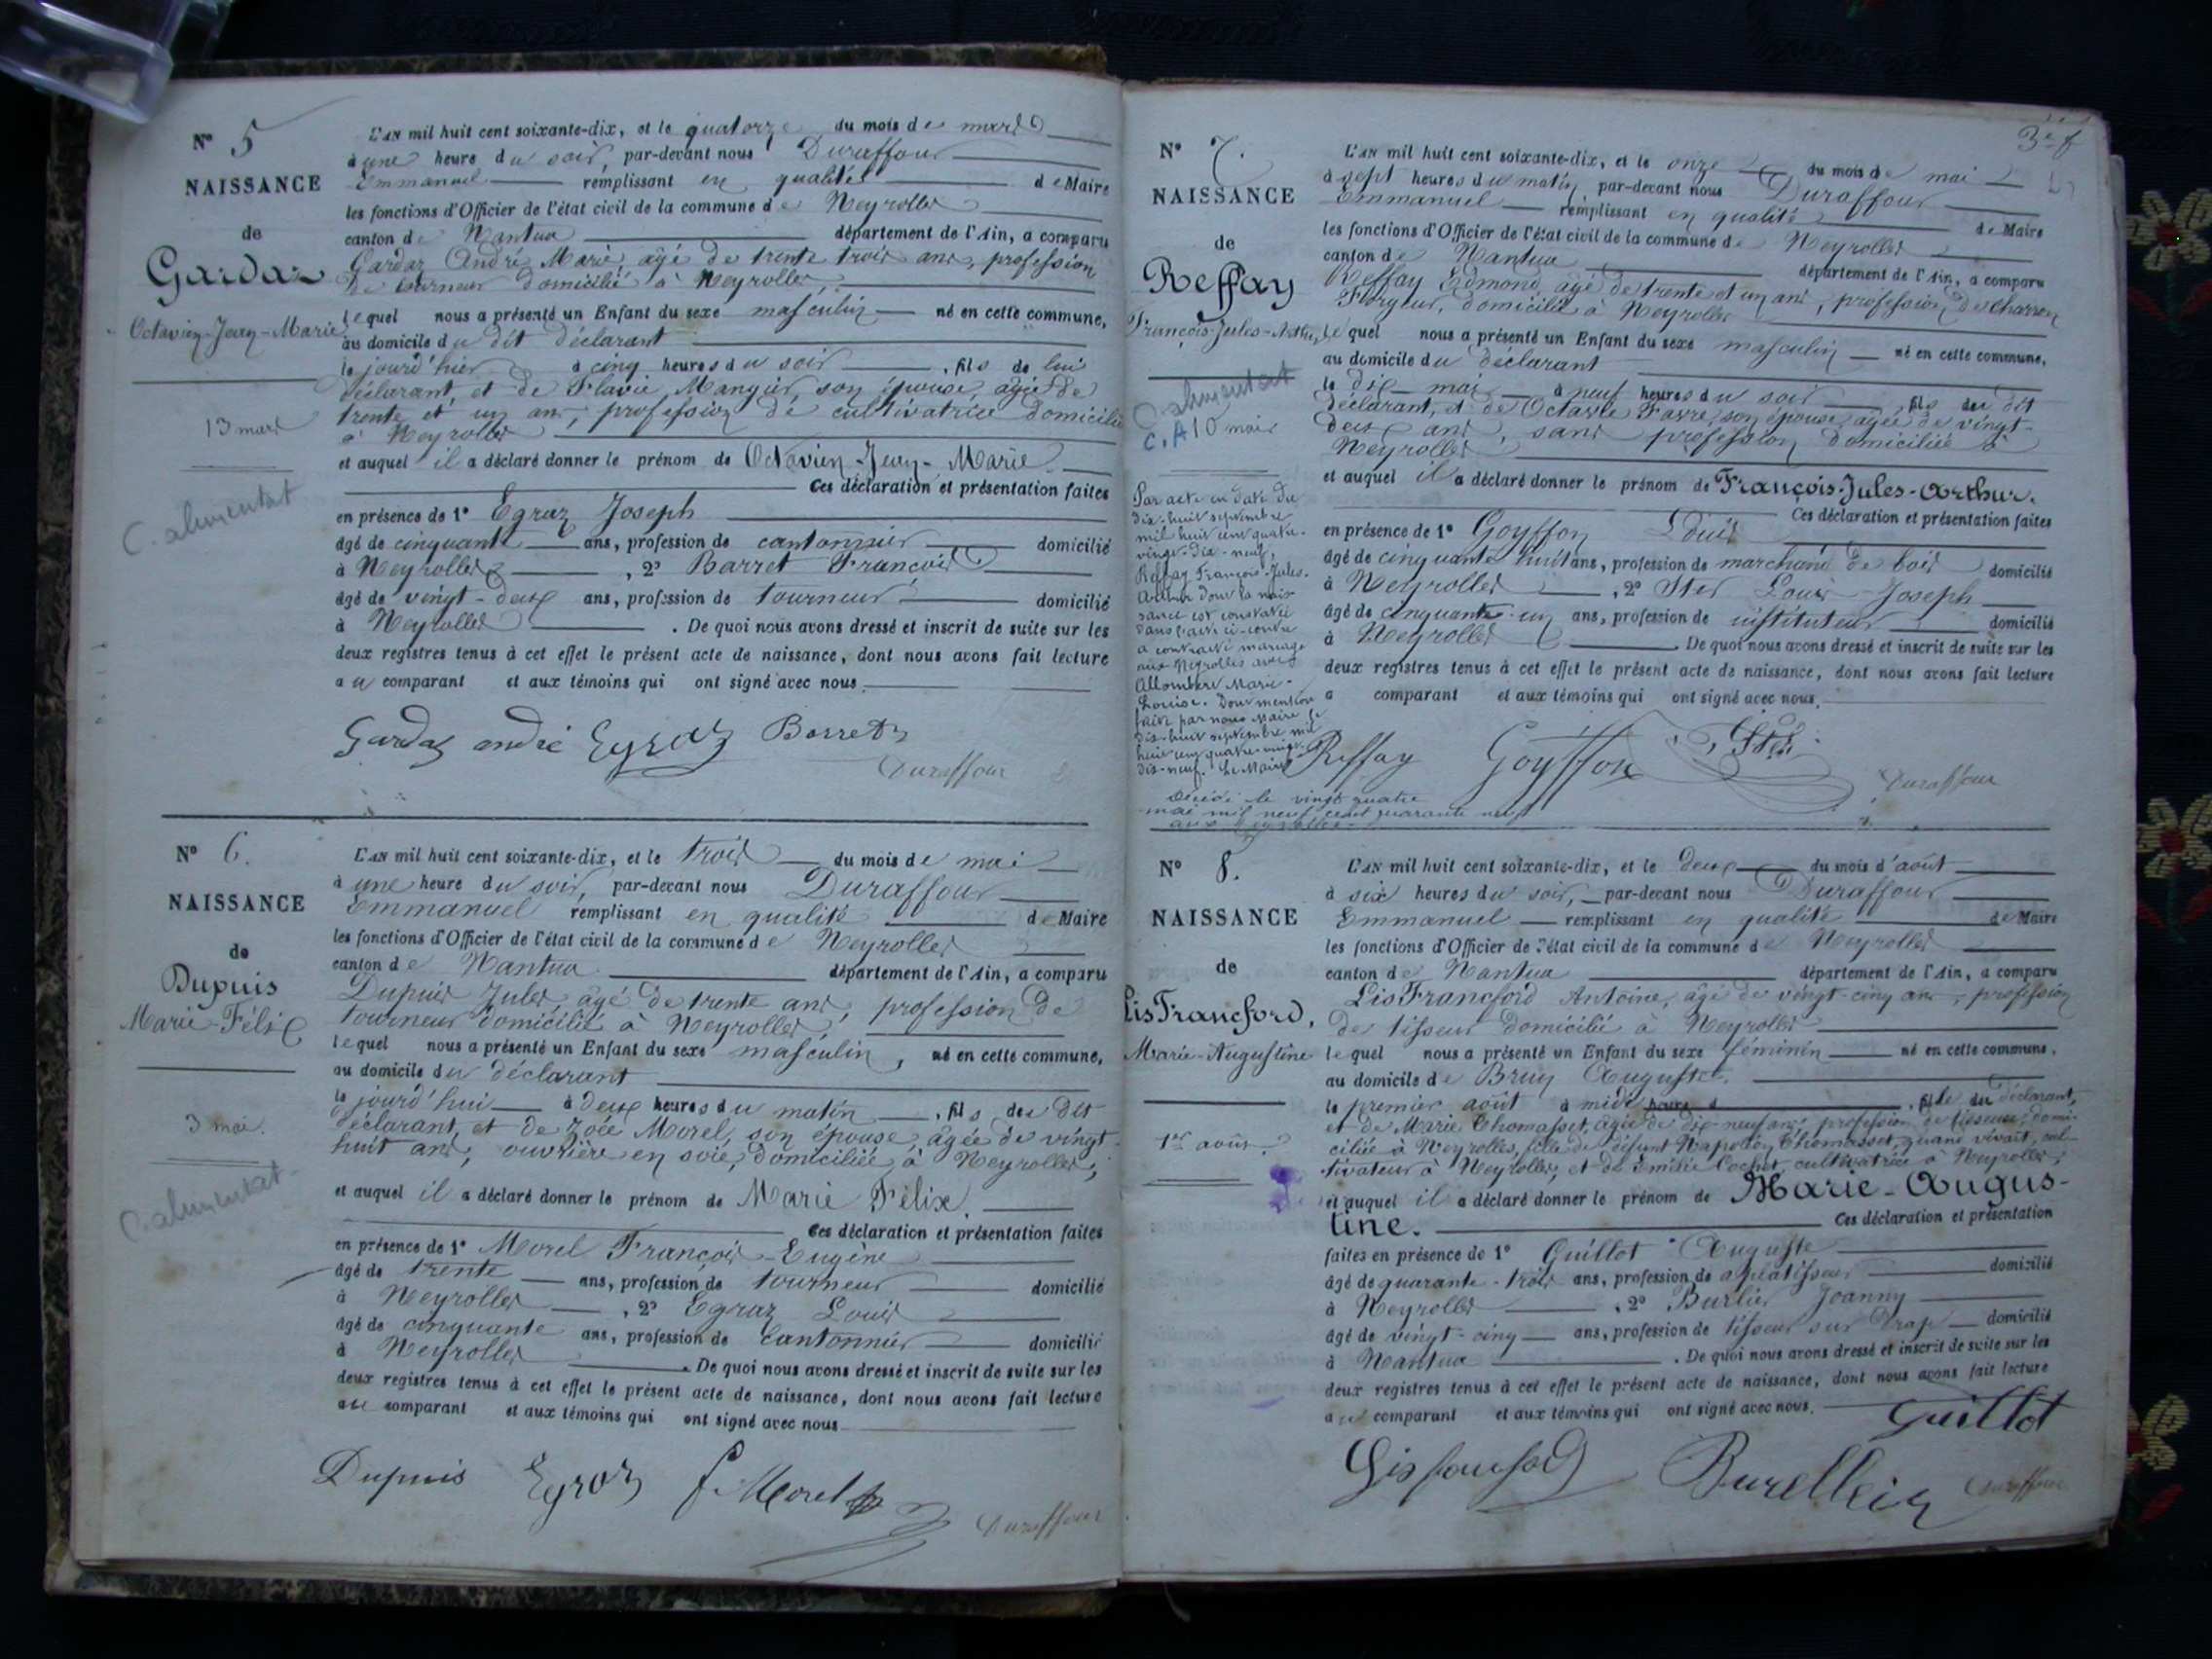 N° 5
NAISSANCE
de
Gardaz
Octavien-Jean-Marie
13 mars
C. alimentat
L'AN mil huit cent soixante-dix, et le quatorze du mois de mars
à une heure du soir, par-devant nous Duraffour
Emmanuel remplissant en qualité de Maire
les fonctions d'Officier de l'état civil de la commune de Neyrolles
canton de Nantua département de l'Ain, a comparu
Gardaz André Marie, âgé de trente trois ans, profession
de tourneur domicilié à Neyrolles,
lequel nous a présenté un Enfant du sexe masculin né en cette commune,
au domicile du dit déclarant
le jourd'hier à cinq heures du soir, fils de lui
déclarant, et de Flavie Mangier, son épouse, âgée de
trente et un ans, profession de cultivatrice domicilié
à Neyrolles
et auquel il a déclaré donner le prénom de Octavien-Jean-Marie
Ces déclaration et présentation faites
en présence de 1° Egraz Joseph
âgé de cinquante ans, profession de cantonnier domicilié
à Neyrolles, 2° Barret François
âgé de vingt-deux ans, profession de tourneur domicilié
à Neyrolles. De quoi nous avons dressé et inscrit de suite sur les
deux registres tenus à cet effet le présent acte de naissance, dont nous avons fait lecture
au comparant et aux témoins qui ont signé avec nous.
Gardaz andré Egraz Barret
Duraffour
N° 6.
NAISSANCE
de
Dupuis
Marie-Félix
3 mai.
C. alimentat
L'AN mil huit cent soixante-dix, et le trois du mois de mai
à une heure du soir, par-devant nous Duraffour
Emmanuel remplissant en qualité de Maire
les fonctions d'Officier de l'état civil de la commune de Neyrolles
canton de Nantua département de l'Ain, a comparu
Dupuis Jules, âgé de trente ans, profession de
tourneur domicilié à Neyrolles,
lequel nous a présenté un Enfant du sexe masculin, né en cette commune,
au domicile du déclarant
le jourd'hui à deux heures du matin, fils du dit
déclarant, et de Zoée Morel, son épouse, âgée de vingt
huit ans, ouvrière en soie, domiciliée à Neyrolles;
et auquel il a déclaré donner le prénom de Marie Félix.
Ces déclaration et présentation faites
en présence de 1° Morel François-Eugène
âgé de trente ans, profession de tourneur domicilié
à Neyrolles, 2° Egraz Louis
âgé de cinquante ans, profession de cantonnier domicilié
à Neyrolles. De quoi nous avons dressé et inscrit de suite sur les
deux registres tenus à cet effet le présent acte de naissance, dont nous avons fait lecture
au comparant et aux témoins qui ont signé avec nous
Dupuis Egraz f. Morel
Duraffour
3e f
N° 7.
NAISSANCE
de
Reffay
François-Jules-Arthur
C. alimentat
C.A 10 mai
Par acte en date du
dix-huit septembre
mil huit cent quatre-
vingt-dix-neuf,
Reffay François-Jules-
Arthur dont la nais-
sance est constatée
dans l'acte ci-contre
a contracté mariage
aux Neyrolles avec
Allombert Marie-
Louise. Dont mention
faite par nous Maire le
dix-huit septembre mil
huit cent quatre-vingt-
dix-neuf. Le Maire
Décédé le vingt quatre
mai mil neuf cent quarante neuf
aux Neyrolles
L'AN mil huit cent soixante-dix, et le onze du mois de mai
à sept heures du matin par-devant nous Duraffour
Emmanuel remplissant en qualité de Maire
les fonctions d'Officier de l'état civil de la commune de Neyrolles
canton de Nantua département de l'Ain, a comparu
Reffay Edmond, âgé de trente et un ans, profession de charron
Forgeur, domicilié à Neyrolles
lequel nous a présenté un Enfant du sexe masculin né en cette commune,
au domicile du déclarant
le dix mai à neuf heures du soir, fils du dit
déclarant, et de Octavie Favre, son épouse, âgée de vingt-
deux ans, sans profession domiciliée à
Neyrolles
et auquel il a déclaré donner le prénom de François-Jules-Arthur.
Ces déclaration et présentation faites
en présence de 1° Goyffon Louis
âgé de cinquante huit ans, profession de marchand de bois domicilié
à Neyrolles, 2° Ster Louis-Joseph
âgé de cinquante-un ans, profession de instituteur domicilié
à Neyrolles. De quoi nous avons dressé et inscrit de suite sur les
deux registres tenus à cet effet le présent acte de naissance, dont nous avons fait lecture
a comparant et aux témoins qui ont signé avec nous.
Reffay Goyffon
Duraffour
N° 8.
NAISSANCE
de
LisFrancford,
Marie-Augustine
1er août
L'AN mil huit cent soixante-dix, et le deux du mois d'août
à six heures du soir, par-devant nous Duraffour
Emmanuel remplissant en qualité de Maire
les fonctions d'Officier de l'état civil de la commune de Neyrolles
canton de Nantua département de l'Ain, a comparu
LisFrancford Antoine, âgé de vingt-cinq ans, profession
de tisseur domicilié à Neyrolles
lequel nous a présenté un Enfant du sexe féminin né en cette commune,
au domicile de Bruy Auguste,
le premier août à midi heures d, fille du déclarant,
et de Marie Thomasset, âgée de dix-neuf ans, profession de tisseuse, domi-
ciliée à Neyrolles, fille de défunt Napoléon Thomasset, quand vivait, cul-
tivateur à Neyrolles, et de Emilie Cochet, cultivatrice à Neyrolles;
et auquel il a déclaré donner le prénom de Marie-Augus-
tine.
Ces déclaration et présentation
faites en présence de 1° Guillot Auguste
âgé de quarante-trois ans, profession de aplatisseur domicilié
à Neyrolles, 2° Burlier Joanny
âgé de vingt-cinq ans, profession de tisseur sur drap domicilié
à Nantua. De quoi nous avons dressé et inscrit de suite sur les
deux registres tenus à cet effet le présent acte de naissance, dont nous avons fait lecture
au comparant et aux témoins qui ont signé avec nous.
Guillot
Duraffour